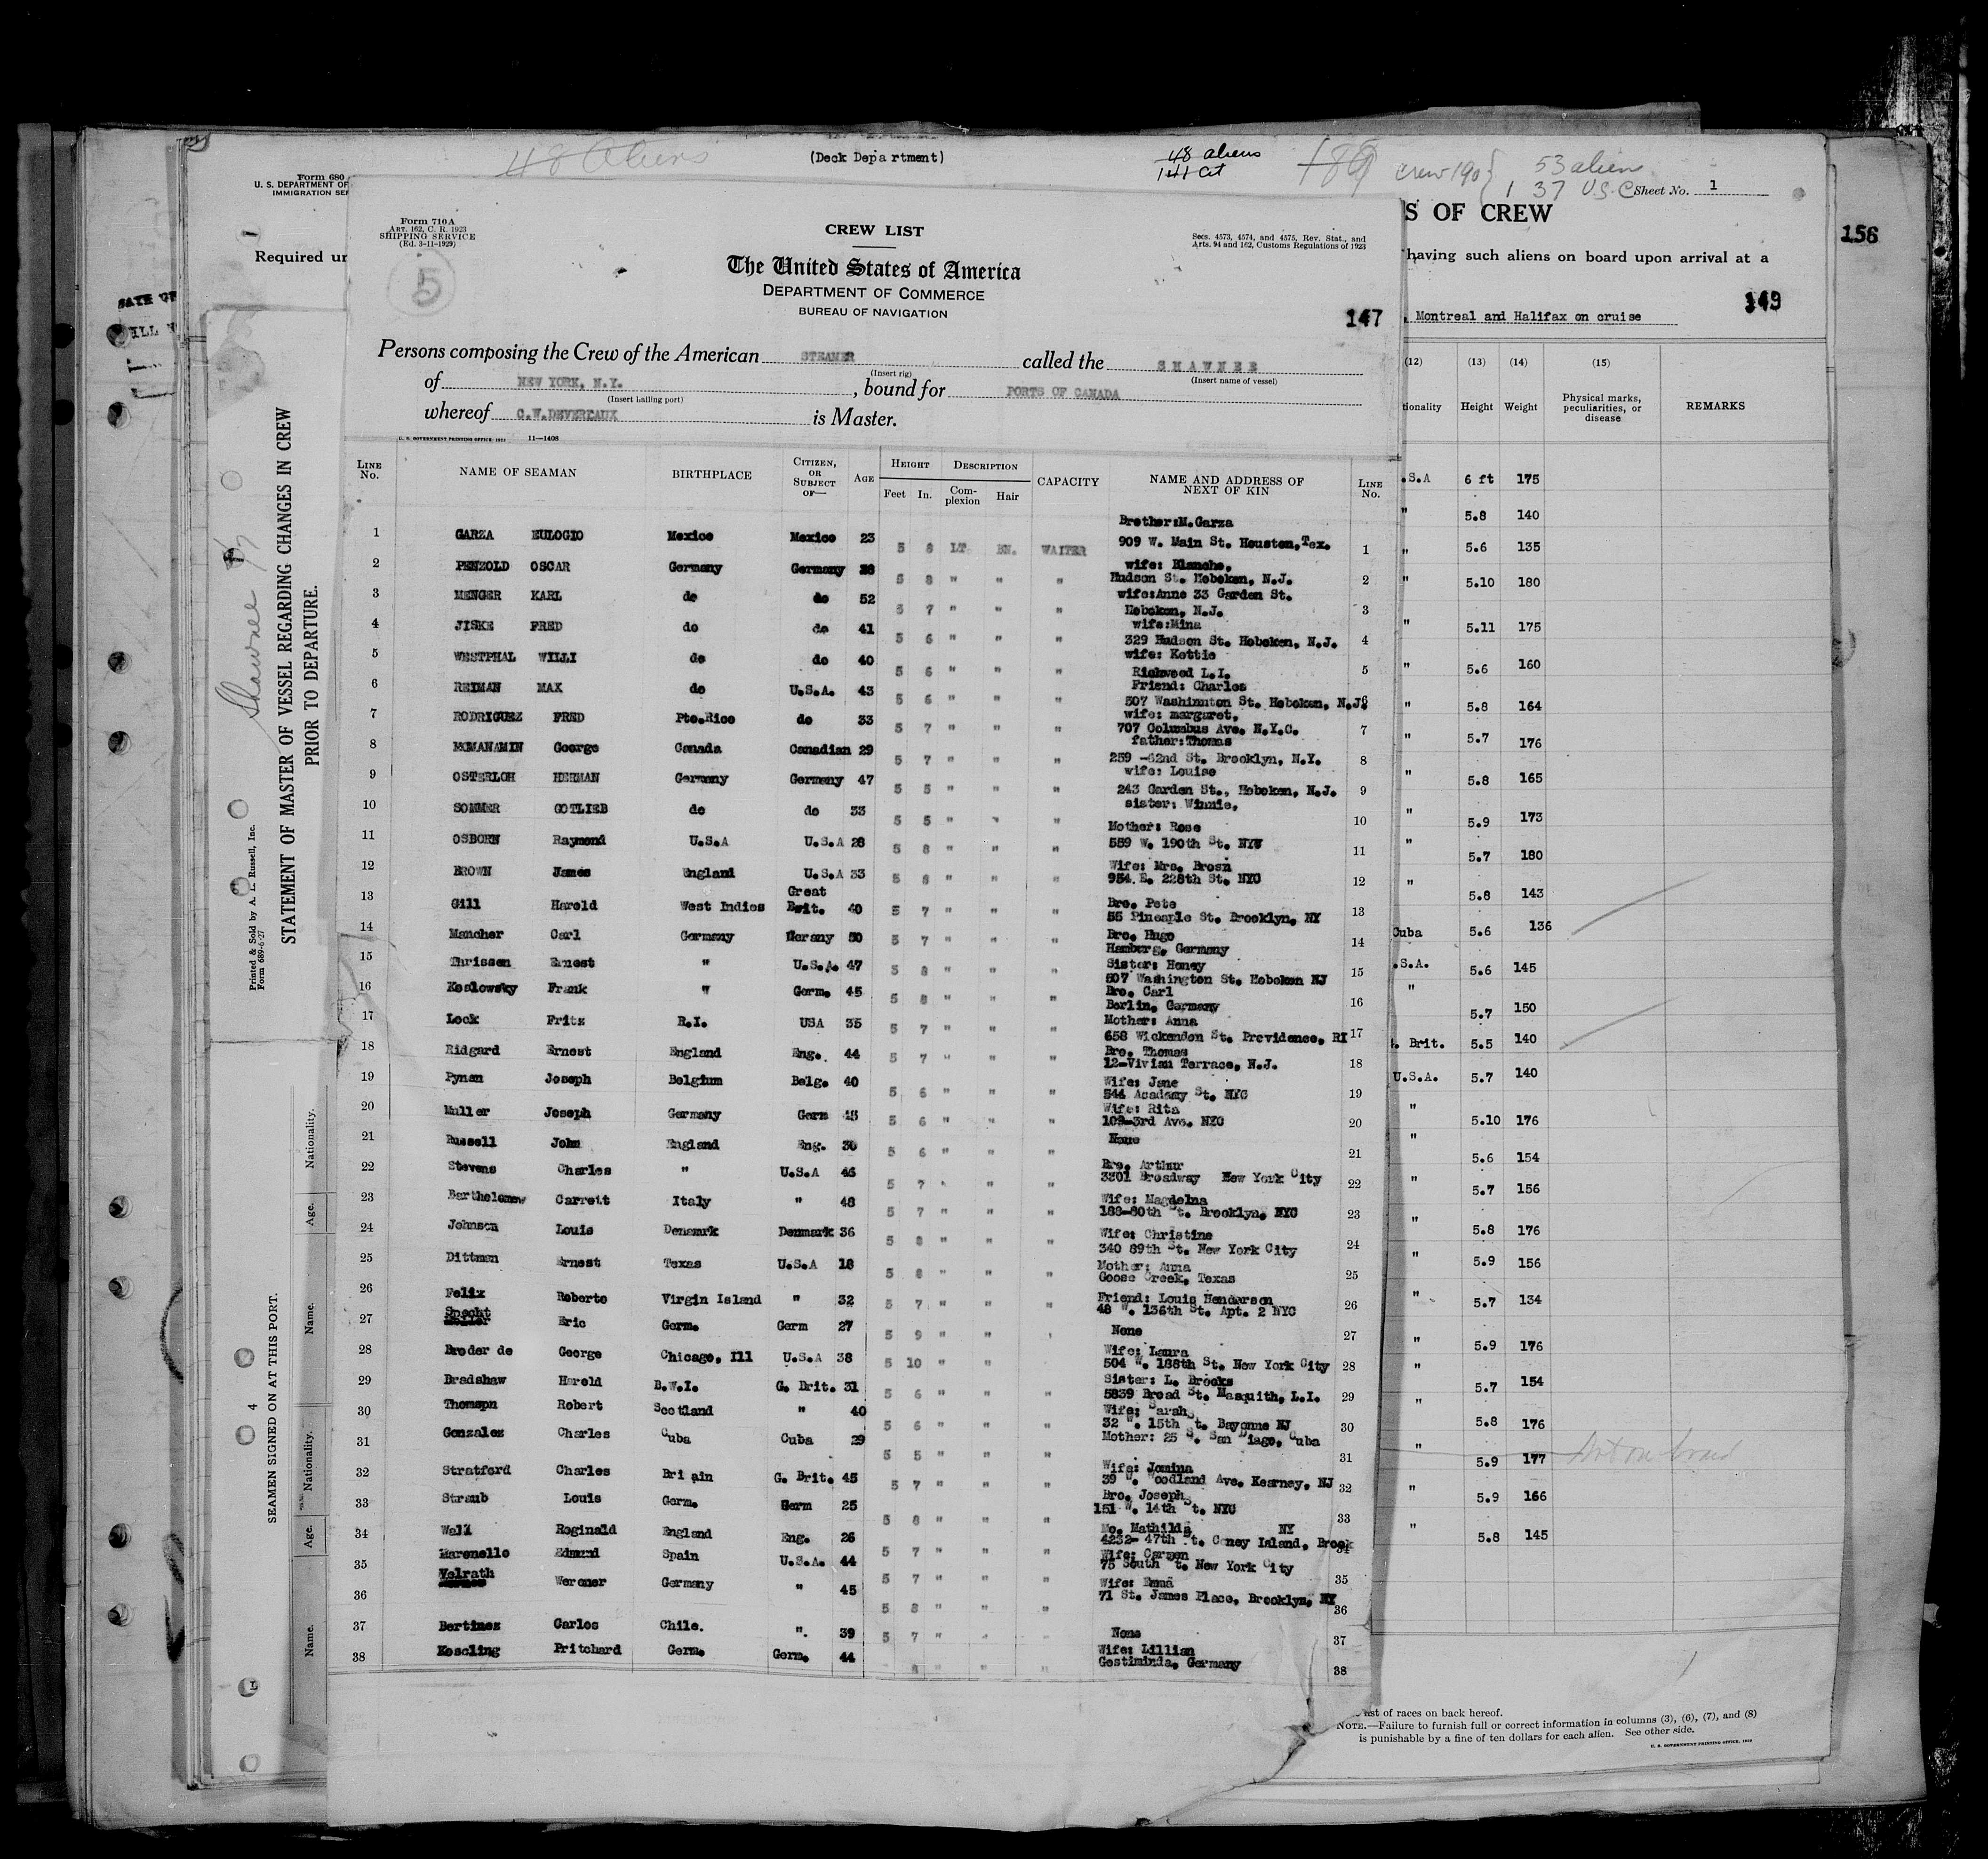 48 Aliens
(Deck Department)
48 aliens
141 Cit
189
crew 190 { 53 alien
137 U.S.C
Sheet No. 1
Form 680
U. S. DEPARTMENT OF
IMMIGRATION SER
S OF CREW
156
Required un
having such aliens on board upon arrival at a
149
, Montreal and Halifax on cruise
Form 710 A
ART. 162, C. R. 1923
SHIPPING SERVICE
(Ed. 3-11-1929)
5
CREW LIST
Secs. 4573, 4574, and 4575, Rev. Stat., and
Arts. 94 and 162, Customs Regulations of 1923
The United States of America
DEPARTMENT OF COMMERCE
BUREAU OF NAVIGATION
147
Persons composing the Crew of the American STEAMER called the SHAWNEE
(Insert rig) (Insert name of vessel)
of NEW YORK, N.Y. , bound for PORTS OF CANADA
(Insert hailing port)
whereof C.W.DEVEREAUX is Master.
U. S. GOVERNMENT PRINTING OFFICE: 11—1408
LINE No. NAME OF SEAMAN BIRTHPLACE CITIZEN, OR SUBJECT OF— AGE HEIGHT Feet In. DESCRIPTION Complexion Hair CAPACITY NAME AND ADDRESS OF NEXT OF KIN LINE No.
1 GARZA EULOGIO Mexico Mexico 23 5 8 LT. BN. WAITER Brother:M.Garza 909 W. Main St. Houston,Tex. 1
2 PENZOLD OSCAR Germany Germany 5 8 " " " wife: Blanche, Hudson St. Hoboken, N.J. 2
3 MENGER KARL do do 52 5 7 " " " wife:Anne 33 Garden St. Hoboken, N.J. 3
4 JISKE FRED do do 41 5 6 " " " wife:Mina 329 Hudson St. Hoboken, N.J. 4
5 WESTPHAL WILLI do do 40 5 6 " " " wife: Kettie Richwood L.I. 5
6 REIMAN MAX do U.S.A. 43 5 6 " " " Friend: Charles 507 Washinnton St. Hoboken, N.J. 6
7 RODRIGUEZ FRED Pto.Rico do 33 5 7 " " " wife: margaret, 707 Columbus Ave. N.Y.C. 7
8 MCMANAMIN George Canada Canadian 29 5 7 " " " father:Thomas 259 -62nd St. Brooklyn, N.Y. 8
9 OSTERLOH HERMAN Germany Germany 47 5 5 " " " wife: Louise 243 Garden St., Hoboken, N.J. 9
10 SOMMER GOTLIEB do do 33 5 5 " " " sister: Winnie, 10
11 OSBORN Raymond U.S.A U.S.A 28 5 8 " " " Mother: Rose 559 W. 190th St. NYC 11
12 BROWN James England U.S.A 33 5 8 " " " Wife: Mrs. Brosn 954 E. 228th St. NYC 12
13 Gill Harold West Indies Great Brit. 40 5 7 " " " Bro. Pete 55 Pineaple St. Brooklyn, NY 13
14 Mancher Carl Germany 50 5 7 " " " Bro. Hugo Hamburg, Germany 14
15 Thrissen Ernest " U.S.A. 47 5 8 " " " Sister: Honey 507 Washington St. Hoboken NJ 15
16 Koslowsky Frank " Germ. 45 5 8 " " " Bro. Carl Berlin, Germany 16
17 Lock Fritz R.I. USA 35 5 7 " " " Mother: Anna 658 Wickendon St. Providence, RI 17
18 Ridgard Ernest England Eng. 44 5 7 " " " Bro. Thomas 12-Vivian Terrace, N.J. 18
19 Pynen Joseph Belgium Belg. 40 5 6 " " " Wife: Jane 544 Academy St. NYC 19
20 Muller Joseph Germany Germ 45 5 6 " " " Wife: Rita 109-3rd Ave. NYC 20
21 Russell John England Eng. 30 5 6 " " " None 21
22 Stevens Charles " U.S.A 46 5 7 " " " Bro. Arthur 3301 Broadway New York City 22
23 Bartholomew Carrett Italy " 48 5 7 " " " Wife: Magdelna 188-80th St. Brooklyn, NYC 23
24 Johnson Louis Denamrk Denmark 36 5 8 " " " Wife: Christine 340 89th St. New York City 24
25 Dittman Ernest Texas U.S.A 18 5 8 " " " Mother: Anna Goose Creek, Texas 25
26 Felix Roberto Virgin Island " 32 5 7 " " " Friend: Louis Henderson 48 W. 136th St. Apt. 2 NYC 26
27 Specht Eric Germ. Germ 27 5 9 " " " None 27
28 Broder de George Chicago, Ill U.S.A 38 5 10 " " Wife: Laura 504 W. 188th St. New York City 28
29 Bradshaw Harold B.W.I. G. Brit. 31 5 6 " " " Sister: L. Brooks 5839 Broad St. Masquith, L.I. 29
30 Thomspn Robert Scotland " 40 5 6 " " " Wife: Sarah 32 W. 15th St. Bayonne NJ 30
31 Gonzalez Charles Cuba Cuba 29 5 5 " " " Mother: 25 S. San Diago, Cuba 31
32 Stratford Charles Bri ain G. Brit. 45 5 7 " " " Wife: Jomina 39 W. Woodland Ave. Kearney, NJ 32
33 Straub Louis Germ. Germ 25 5 8 " " " Bro. Joseph 151 W. 14th St. NYC 33
34 Wall Reginald England Eng. 26 5 7 " " " Mo. Mathilda NY 4232- 47th St. Coney Island, Brook 34
35 Marenello Edmund Spain U.S.A. 44 5 7 " " " Wife: Carmen 75 South St. New York City 35
36 Velrath Werener Germany " 45 5 8 " " " Wife: Emma 71 St. James Place, Brooklyn, NY 36
37 Bertinez Carlos Chile. ". 39 5 7 " " None 37
38 Kessling Pritchard Germ. Germ. 44 8 " " " Wife: Lillian Gestiminda, Germany 38
(12) (13) (14) (15)
tionality Height Weight Physical marks, peculiarities, or disease REMARKS
.S.A 6 ft 175
" 5.8 140
" 5.6 135
" 5.10 180
" 5.11 175
" 5.6 160
" 5.8 164
" 5.7 176
" 5.8 165
" 5.9 173
" 5.7 180
" 5.8 143
Cuba 5.6 136
.S.A. 5.6 145
" 5.7 150
. Brit. 5.5 140
U.S.A. 5.7 140
" 5.10 176
" 5.6 154
" 5.7 156
" 5.8 176
" 5.9 156
" 5.7 134
" 5.9 176
" 5.7 154
" 5.8 176
" 5.9 177 Not on board
" 5.9 166
" 5.8 145
list of races on back hereof.
NOTE.—Failure to furnish full or correct information in columns (3), (6), (7), and (8)
is punishable by a fine of ten dollars for each alien. See other side.
U. S. GOVERNMENT PRINTING OFFICE
Shawnee
STATEMENT OF MASTER OF VESSEL REGARDING CHANGES IN CREW
PRIOR TO DEPARTURE.
Printed & Sold by A. L. Russell, Inc.
Form 689-6-27
SEAMEN SIGNED ON AT THIS PORT.
Name. Age. Nationality. Name. Age. Nationality.
4